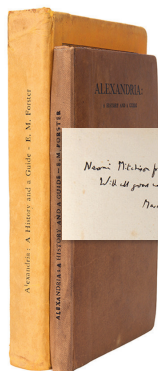 Alexandria: A History and a Guide - E. M. Forster
ALEXANDRIA: A HISTORY AND A GUIDE - E. M. FORSTER
ALEXANDRIA:
A HISTORY AND A GUIDE
Naomi Mitchison
With all good